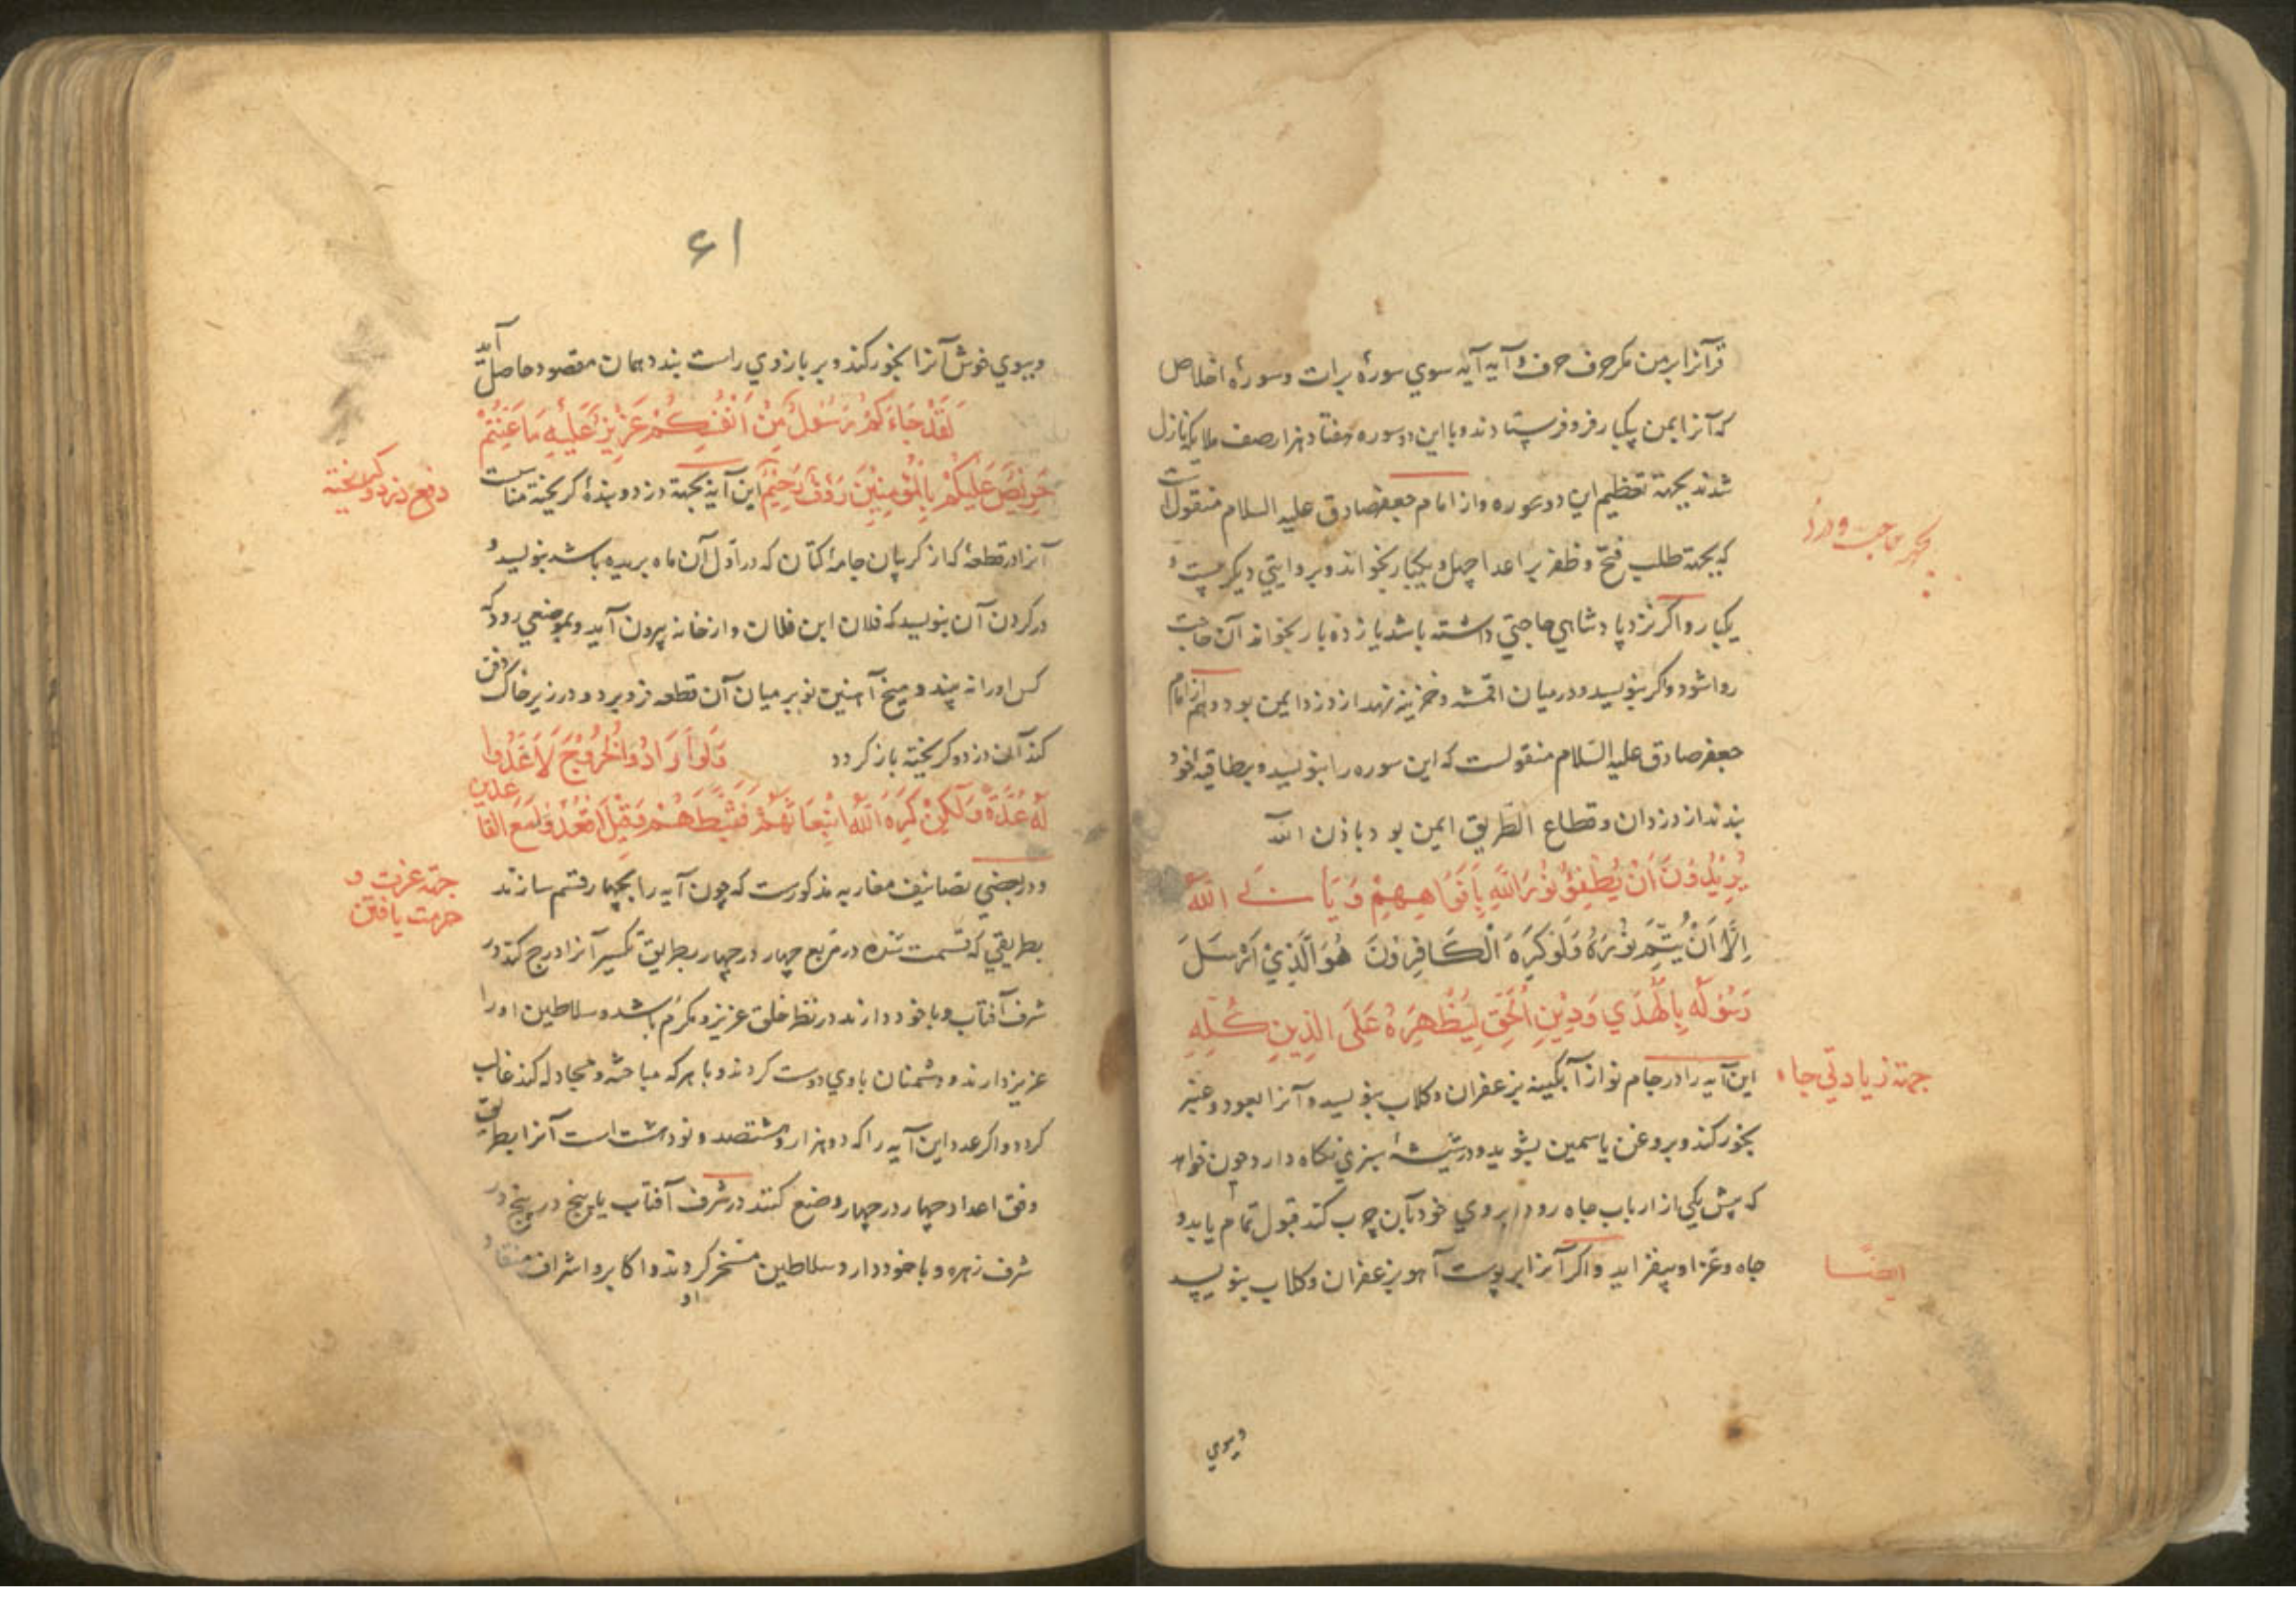 قرآنرا بر من مکر حرف حرف و آیه آیه سوي سورهٔ برات و سورهٔ اخلاص
که آنرا بمن یکبار فرو فرستادند و با این دو سوره هفتاد هزار صف ملایکه نازل
شدند بجهة تعظیم این دو سوره و از امام جعفر صادق علیه السلام منقول است
که بجهة طلب فتح و ظفر بر اعدا چهل و یکبار بخواند و بروایتي دیکر بیست و
یکبار و اکر نزد پادشاهي حاجتي داشته باشد یازده بار بخواند آن حاجت
روا شود و اکر بنویسد و در میان اقمشه و خزینه نهد از دزد ایمن بود و هم از امام
جعفر صادق علیه السلام منقولست که این سوره را بنویسد و بر طاقیهٔ خود
بندند از دزدان و قطاع الطریق ایمن بود باذن الله
یُرِیْدُوْنَ اَنْ یُطْفِؤُ نُوْرَ اللّٰهِ بِاَفْوَاهِهِمْ وَیَأْبَی اللّٰهُ
اِلَّا اَنْ یُتِمَّ نُوْرَهُ وَلَوْ کَرِهَ الْکَافِرُوْنَ هُوَ الَّذِيْ اَرْسَلَ
رَسُوْلَهُ بِالْهُدَي وَدِیْنِ الْحَقِّ لِیُظْهِرَهُ عَلَی الدِّیْنِ کُلِّهِ
جهة زیادتي جاه
این آیه را در جام نو از آبکینه بزعفران و کلاب بنویسد و آنرا بعود و عنبر
بخور کند و بروغن یاسمین بشوید و در شیشهٔ سبزي نکاه دارد و چون خواهد
که پیش یکي از ارباب جاه رود ابروي خود بآن چرب کند قبول تمام یابد و
جاه و عز او بیفزاید و اکر آنرا بر پوست آهو بزعفران و کلاب بنویسد
ایضًا
وببوي
۶۱
و ببوي خوش آنرا بخور کند و بر بازوي راست بندد همان مقصود حاصل آید
لَقَدْ جَاءَکُمْ رَسُوْلٌ مِنْ اَنْفُسِکُمْ عَزِیْزٌ عَلَیْهِ مَا عَنِتُّمْ
حَرِیْصٌ عَلَیْکُمْ بِالْمُؤْمِنِیْنَ رَؤُفٌ رَحِیْمٌ این آیه بجهة دزد و بندهٔ کریخته مناسبست
دفع دزد و کریخته
آنرا در قطعهٔ که از کریبان جامهٔ کتان که در اول آن ماه بریده باشد بنویسد و
در کردن آن بنویسد که فلان ابن فلان و از خانه بیرون آید و بموضعي رود که
کس او را نه بیند و میخ آهنین نو بر میان آن قطعه فرو برد و در زیر خاک دفن
کند آن دزد و کریخته باز کردد وَلَوْ اَرَادُوا الْخُرُوْجَ لَاَعَدُّوا
لَهُ عُدَّةً وَلٰکِنْ کَرِهَ اللّٰهُ انْبِعَاثَهُمْ فَثَبَّطَهُمْ وَقِیْلَ اقْعُدُوْا مَعَ الْقَاعدین
جهة عزت و
حرمت یافتن
و در بعضي تصانیف مغاربه مذکورست که چون آیه را بچهار قسم سازند
بطریقي که قسمت شده در مربع چهار در چهار بطریق تکسیر آنرا درج کند در
شرف آفتاب و با خود دارند در نظر خلق عزیز و مکرم باشد و سلاطین او را
عزیز دارند و دشمنان با وي دوست کردند و با هر که مباحثه و مجادله کند غالب
کردد و اکر عدد این آیه را که دو هزار و هشتصد و نود هشت است آنرا بطریق
وفق اعداد چهار در چهار وضع کنند در شرف آفتاب یا پنج در پنج در
شرف زهره و با خود دارد سلاطین مسخر کردند و اکابر و اشراف منقاد
او